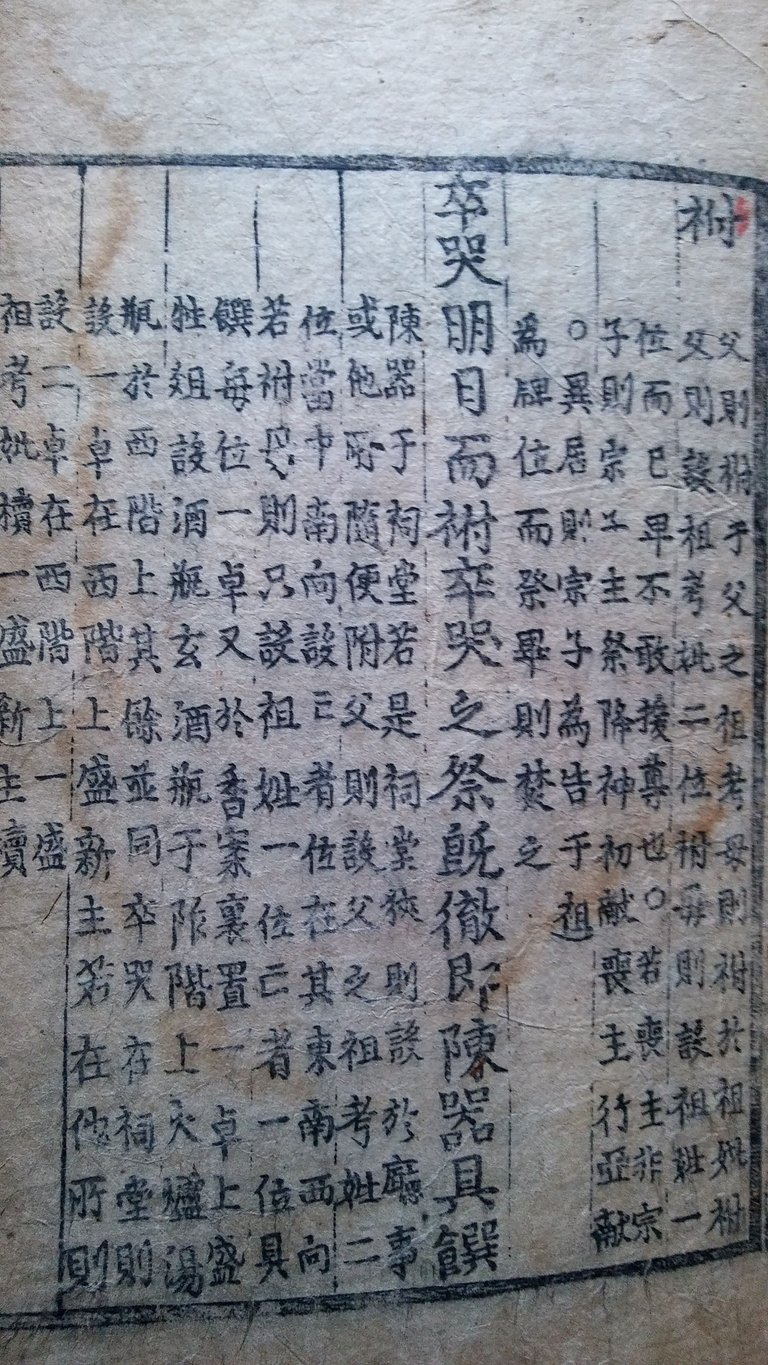 祔
父則祔于父之祖考母則祔於祖妣祔
父則設祖考妣二位祔母則設祖妣一
位而已卑不敢援尊也○若喪主非宗
子則宗子主祭降神初献喪主行亞献
○異居則宗子為告于祖
為牌位而祭畢則焚之
卒哭明日而祔卒哭之祭既徹即陳器具饌
陳器于祠堂若是祠堂狹則設於廳事
或他所隨便附父則設父之祖考妣二
位當中南向設亡者位在其東南西向
若祔母則只設祖妣一位亡者一位具
饌每位一卓又於香案裏置一卓上盛
牲俎設酒瓶玄酒瓶于阼階上火爐湯
瓶於西階上其餘並同卒哭在祠堂則
設一卓在西階上盛新主若在他所則
設二卓在西階上一盛
祖考妣櫝一盛新主櫝